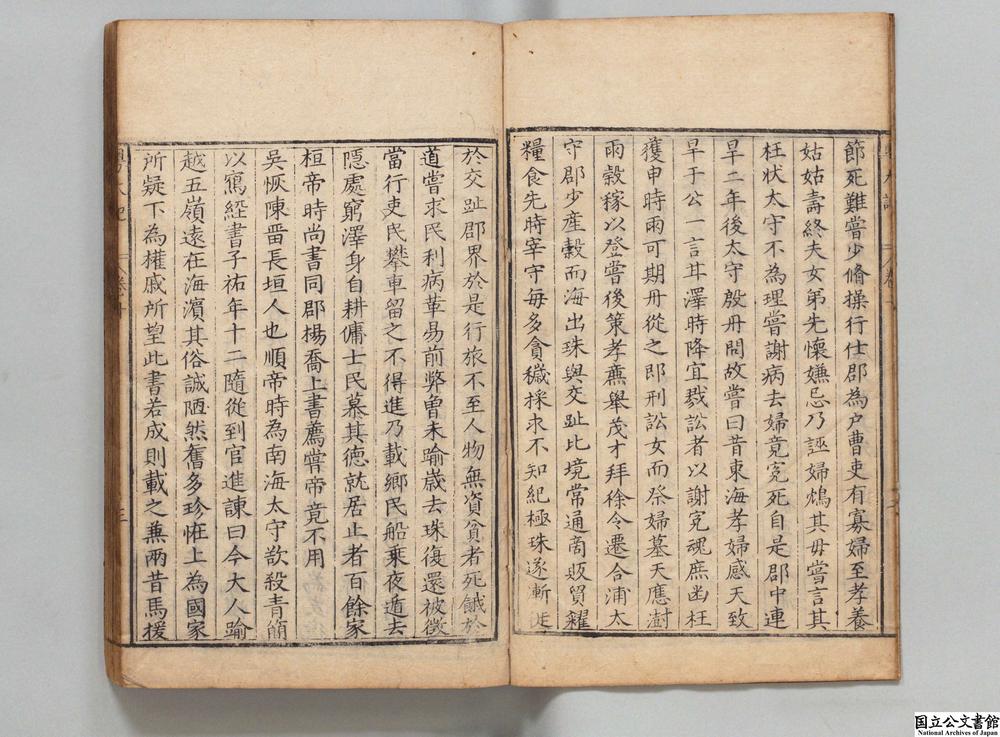 節死難嘗少脩操行仕郡為户曹吏有寡婦至孝養
姑姑壽終夫女第先懷嫌忌乃誣婦鴆其母嘗言其
枉状太守不為理嘗謝病去婦竟寃死自是郡中連
旱二年後太守殷丹問故嘗曰昔東海孝婦感天致
旱于公一言甘澤時降宜戮訟者以謝寃魂庶函枉
獲申時雨可期丹從之即刑訟女而祭婦墓天應澍
雨穀稼以登嘗後策孝廉舉茂才拜徐令遷合浦太
守郡少産穀而海出珠與交趾比境常通商販貿糴
糧食先時宰守毎多貪穢採求不知紀極珠遂漸徙
於交趾郡界於是行旅不至人物無資貧者死餓於
道嘗求民利病革易前弊曽未踰歳去珠復還被徴
當行吏民攀車留之不得進乃載鄉民船乘夜遁去
隱處窮澤身自耕傭士民慕其徳就居止者百餘家
桓帝時尚書同郡楊喬上書薦嘗帝竟不用
吳恢陳畱長垣人也順帝時為南海太守欲殺青簡
以寫經書子祐年十二隨從到官進諫曰今大人踰
越五嶺遠在海濵其俗誠陋然舊多珍恠上為國家
所疑下為權戚所望此書若成則載之兼兩昔馬援
国立公文書館
National Archives of Japan